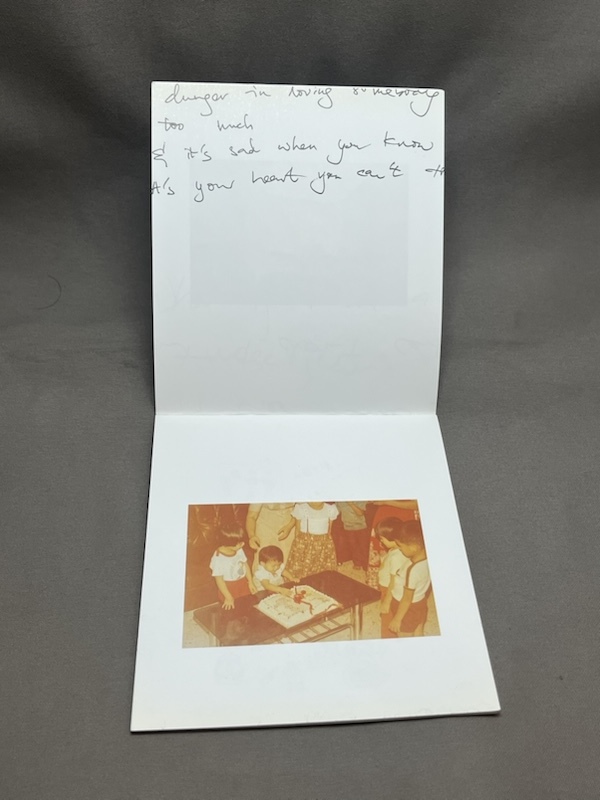 danger in loving somebody
too much
& it's sad when you know
it's your heart you can't